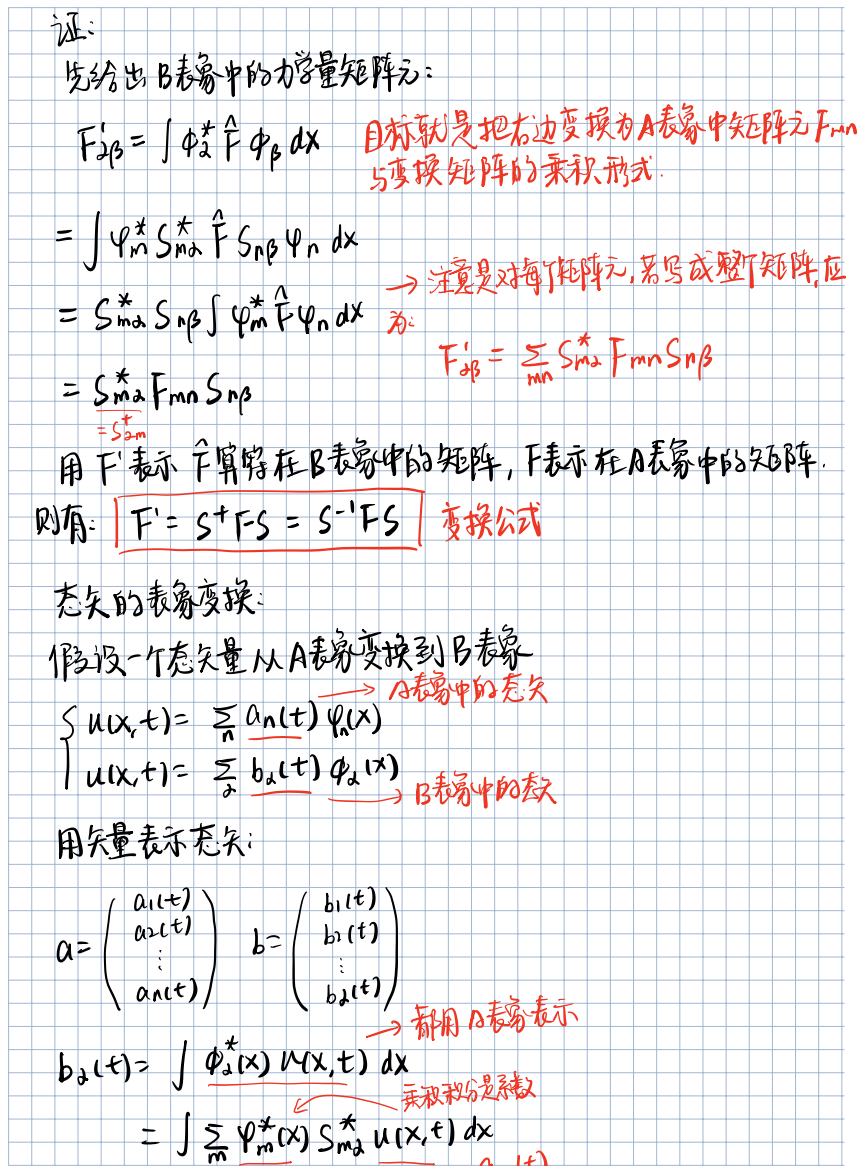 证:
先给出B表象中的力学量矩阵元:
F'αβ = ∫ φα* F̂ φβ dx
目标就是把右边变换为A表象中矩阵元Fmn
与变换矩阵的乘积形式.
= ∫ ψm* Smα* F̂ Snβ ψn dx
= Smα* Snβ ∫ ψm* F̂ ψn dx
→ 注意是对每个矩阵元,若写成整个矩阵,应
为:
F'αβ = Σmn Smα* Fmn Snβ
= Smα* Fmn Snβ
= S†αm
用F'表示F̂算符在B表象中的矩阵,F表示在A表象中的矩阵.
则有: F' = S⁺FS = S⁻¹FS 变换公式
态矢的表象变换:
假设一个态矢量从A表象变换到B表象
→ A表象中的态矢
{ u(x,t) = Σn an(t) ψn(x)
u(x,t) = Σα bα(t) φα(x)
→ B表象中的态矢
用矢量表示态矢:
a = ( a1(t) a2(t) ⋮ an(t) ) b = ( b1(t) b2(t) ⋮ bα(t) )
→ 都用A表象表示
bα(t) = ∫ φα*(x) u(x,t) dx
乘积积分是系数
= ∫ Σm ψm*(x) Smα* u(x,t) dx